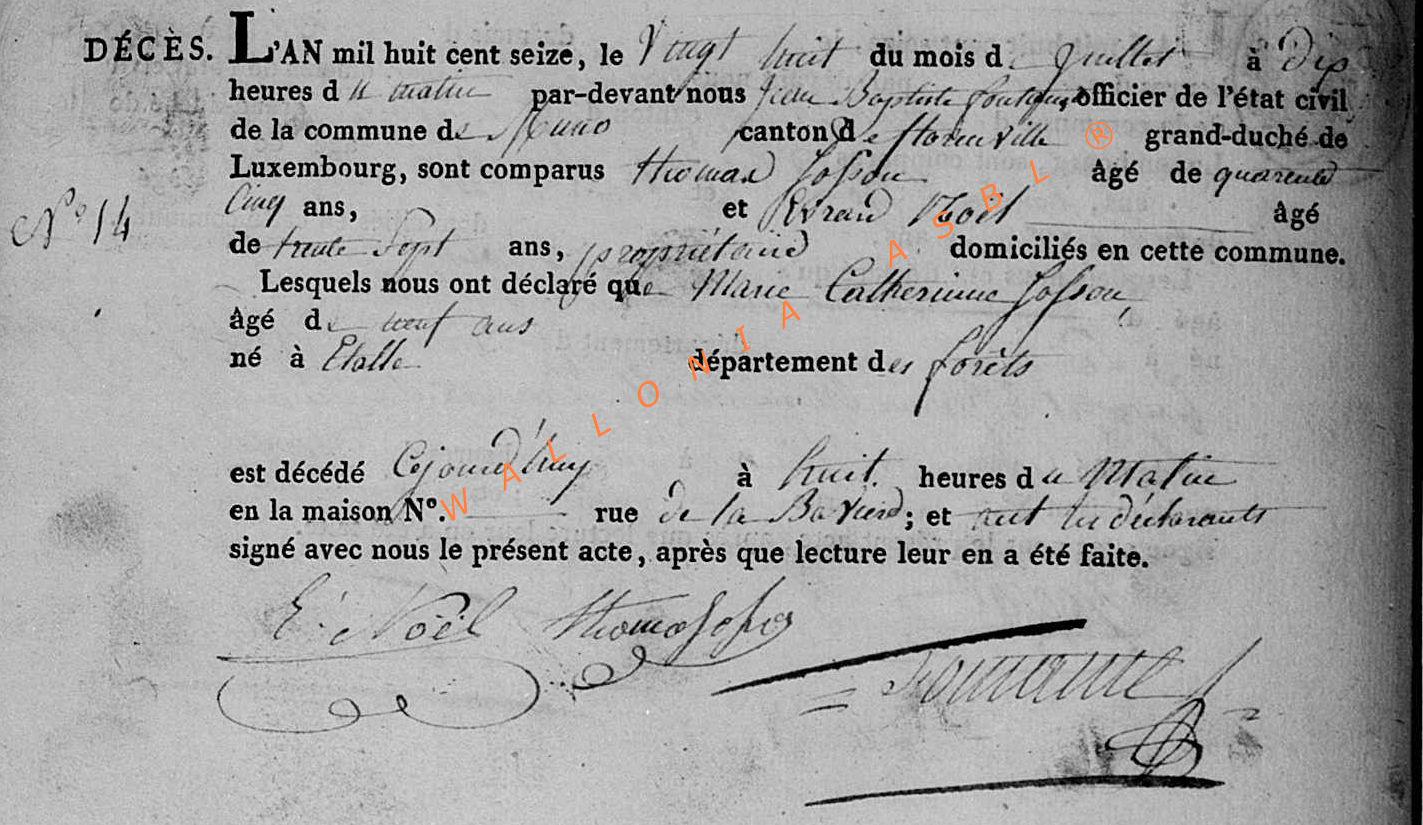 DÉCÈS. L'AN mil huit cent seize, le Vingt huit du mois de Juillet à dix
heures du matin par-devant nous Jean Baptiste officier de l'état civil
de la commune de canton de florenville grand-duché de
Luxembourg, sont comparus thomas Josson âgé de quarente
N° 14 Cinq ans, et Evrard Noël âgé
de trente Sept ans, propriétaire domiciliés en cette commune.
Lesquels nous ont déclaré que Marie Catherinne Josson
âgé de neuf ans
né à Etalle département des forêts
est décédé Cejourd'huy à huit heures du Matin
en la maison N°. rue de la ; et ont les déclarants
signé avec nous le présent acte, après que lecture leur en a été faite.
E. Noël thomas
WALLONIA ASBL ®